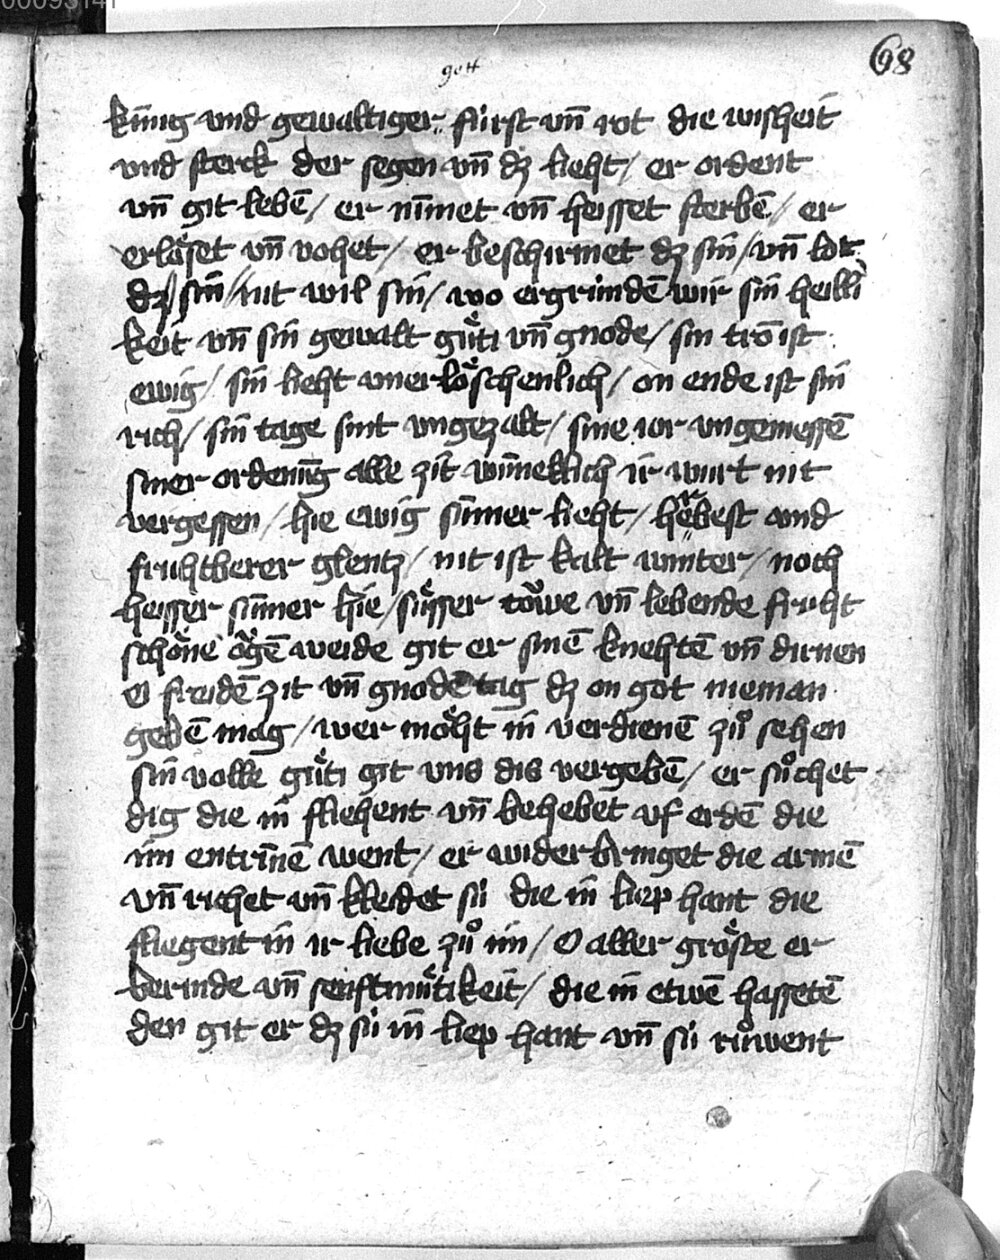 00093141
68
gott
kúnig vnd gewaltiger fúrst vn̄ rot die wisheit
vnd sterck der segen vn̄ dz lieht / er ordent
vn̄ git lebē / er nīmet vn̄ heisset sterbē / er
erlo̊set vn̄ vohet / er beschirmet dz sin / vn̄ lot
dz sin / nit wil sin / wo ergrúndē wir sin heilli
keit vn̄ sin gewalt gu̇ti vn̄ gnode / sin trō ist
ewig / sin lieht vnerlo̊schenlich / on ende ist sin
rich / sin tage sint vngezalt / sine ior vngemessē
siner ordenūg alle zit wūneklich ir wurt nit
vergessen / hie ewig sūmer lieht / herbest vnd
fruhtberer glentz / nit ist kalt winter / noch
heisser sūmer hie / sússer to̊we vn̄ lebende fruht
scho̊ne o̊gē weide git er sinē knehtē vn̄ dirnen
ei freidē zit vn̄ gnodē tag dz on got nieman
gebē mag / wer mo̊ht in verdienē zů sehen
sin volle gu̇ti git vns dis vergebē / er sůchet
dig die in fliehent vn̄ behebet vf erdē die
im entrīnē went / er widerbringet die armē
vn̄ richet vn̄ kleidet sú die in liep hant die
fliegent in ir liebe zů im / O aller gro̊ste er
bermde vn̄ senftmu̇tikeit / die in etwē hassetē
den git er dz sú in liep hant vn̄ sú rúwent